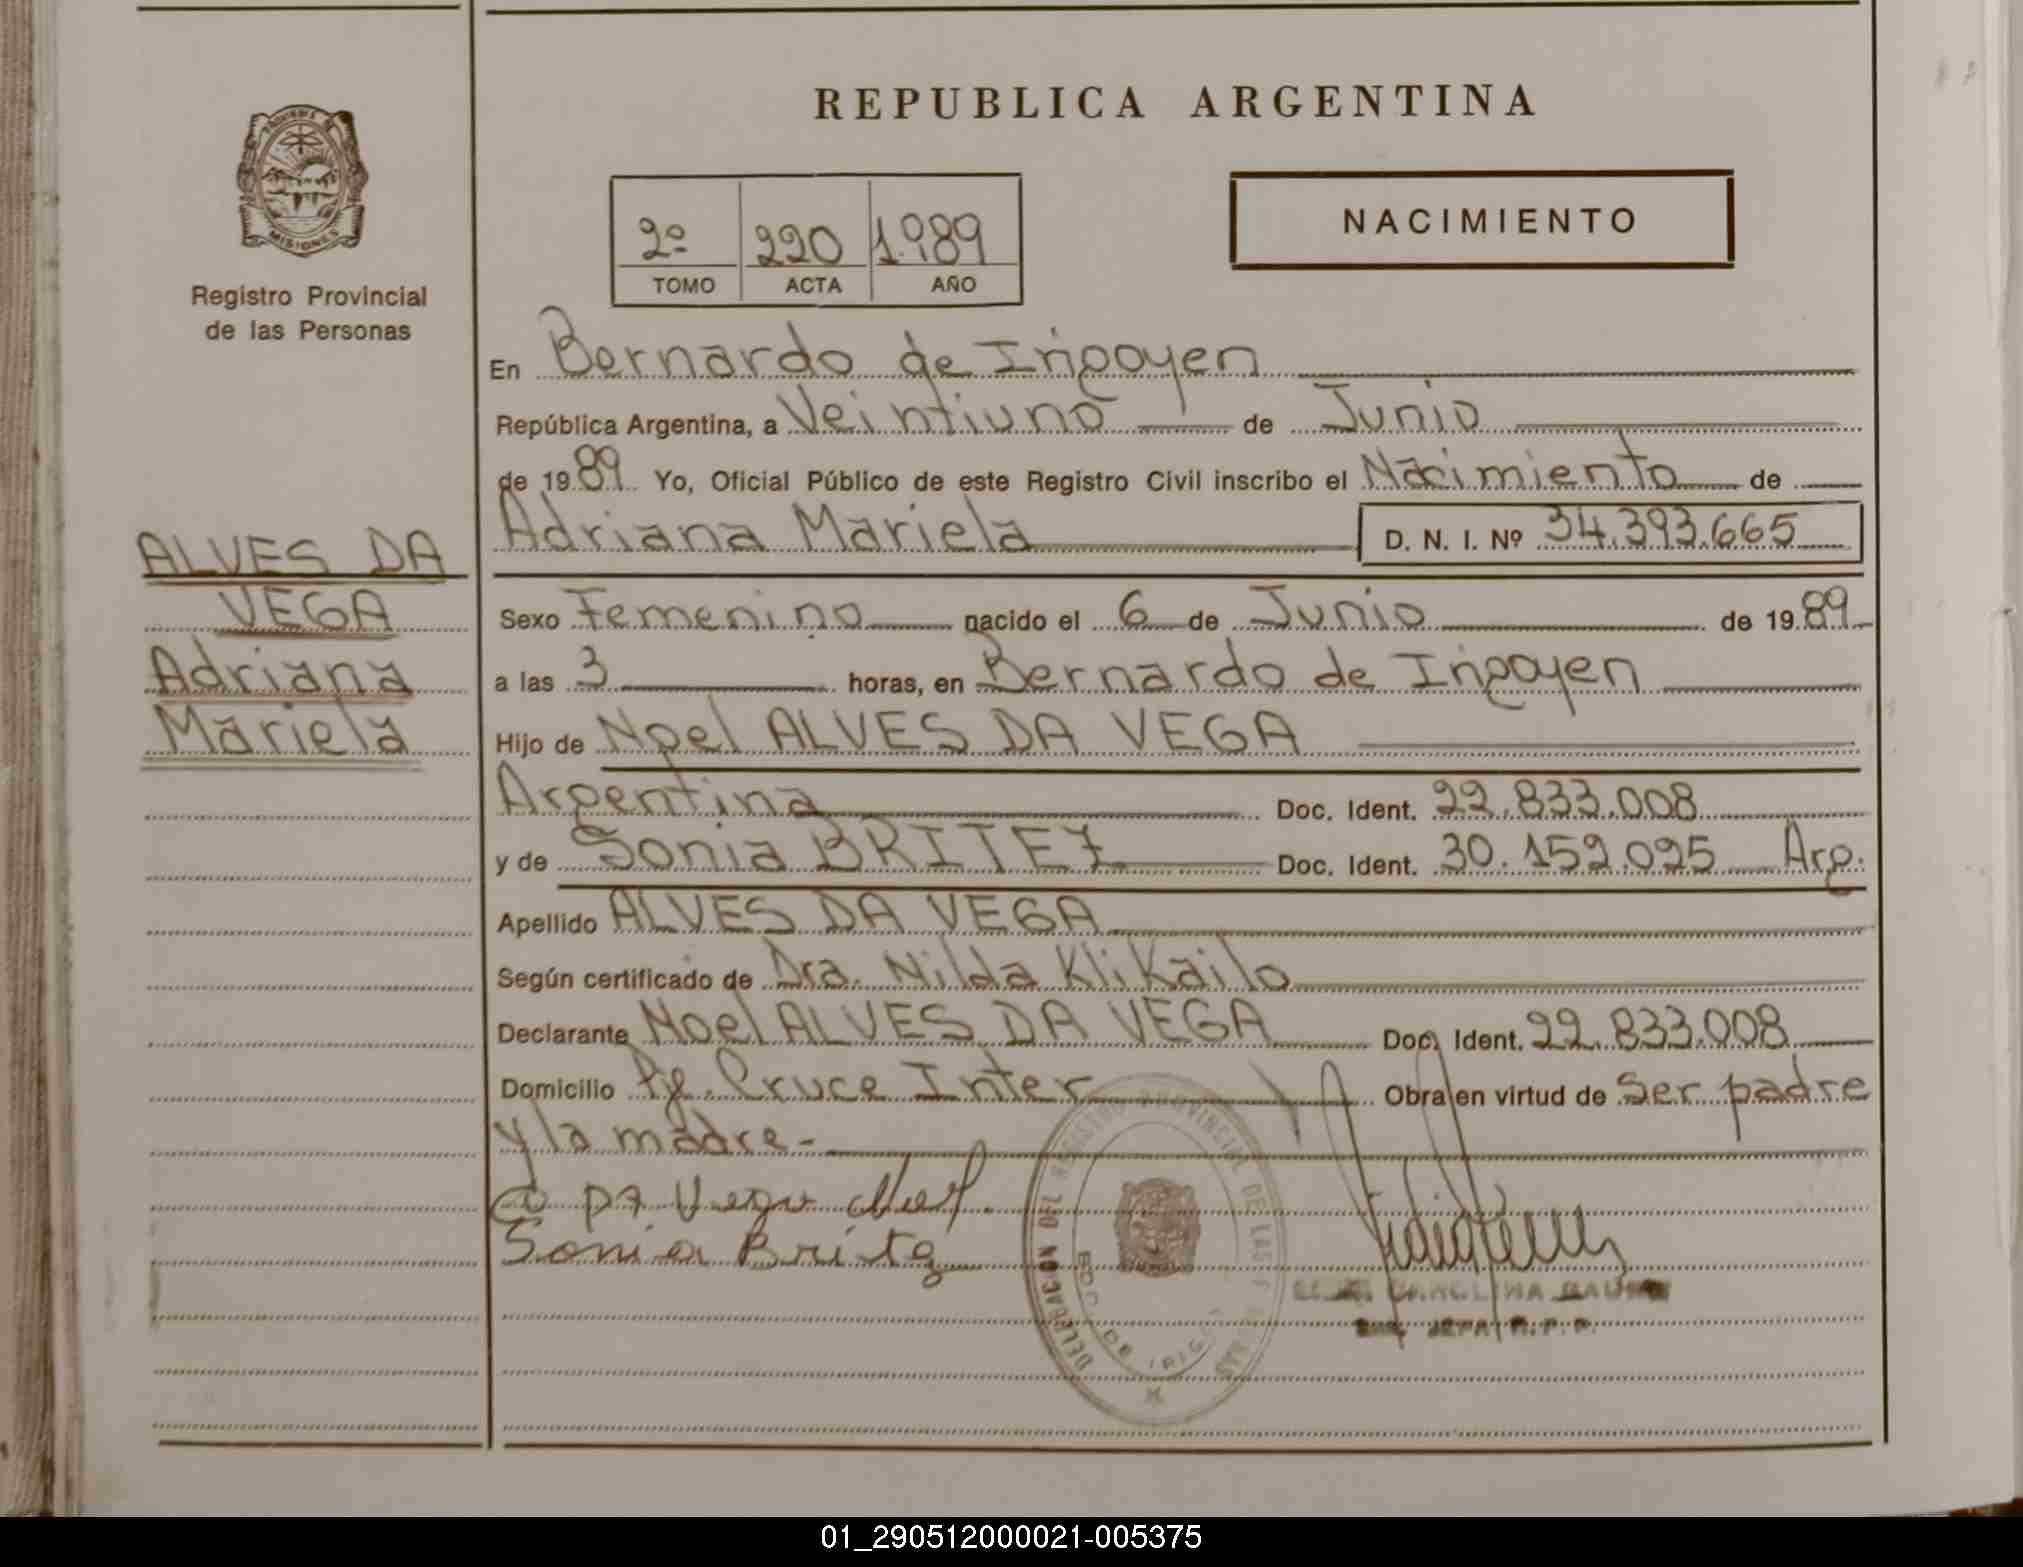 REPUBLICA ARGENTINA
PROVINCIA DE
MISIONES
Registro Provincial
de las Personas
2º 220 1.989
TOMO ACTA AÑO
NACIMIENTO
En Bernardo de Irigoyen
República Argentina, a Veintiuno de Junio
de 1989 Yo, Oficial Público de este Registro Civil inscribo el Nacimiento de
Adriana Mariela D. N. I. Nº 34.393.665
ALVES DA
VEGA
Adriana
Mariela
Sexo Femenino nacido el 6 de Junio de 1989
a las 3 horas, en Bernardo de Irigoyen
Hijo de Noel ALVES DA VEGA
Argentina Doc. Ident. 22.833.008
y de Sonia BRITEZ Doc. Ident. 30.152.025 Arg.
Apellido ALVES DA VEGA
Según certificado de Dra. Nilda Klikailo
Declarante Noel ALVES DA VEGA Doc. Ident. 22.833.008
Domicilio Pje. Cruce Inter Obra en virtud de Ser padre
y la madre-
Da Vega Noel.
Sonia Britez
DELEGACION DEL REGISTRO PROVINCIAL DE LAS
BDO. DE IRIG
CAROLINA
JEFA R.P.P.
01_290512000021-005375